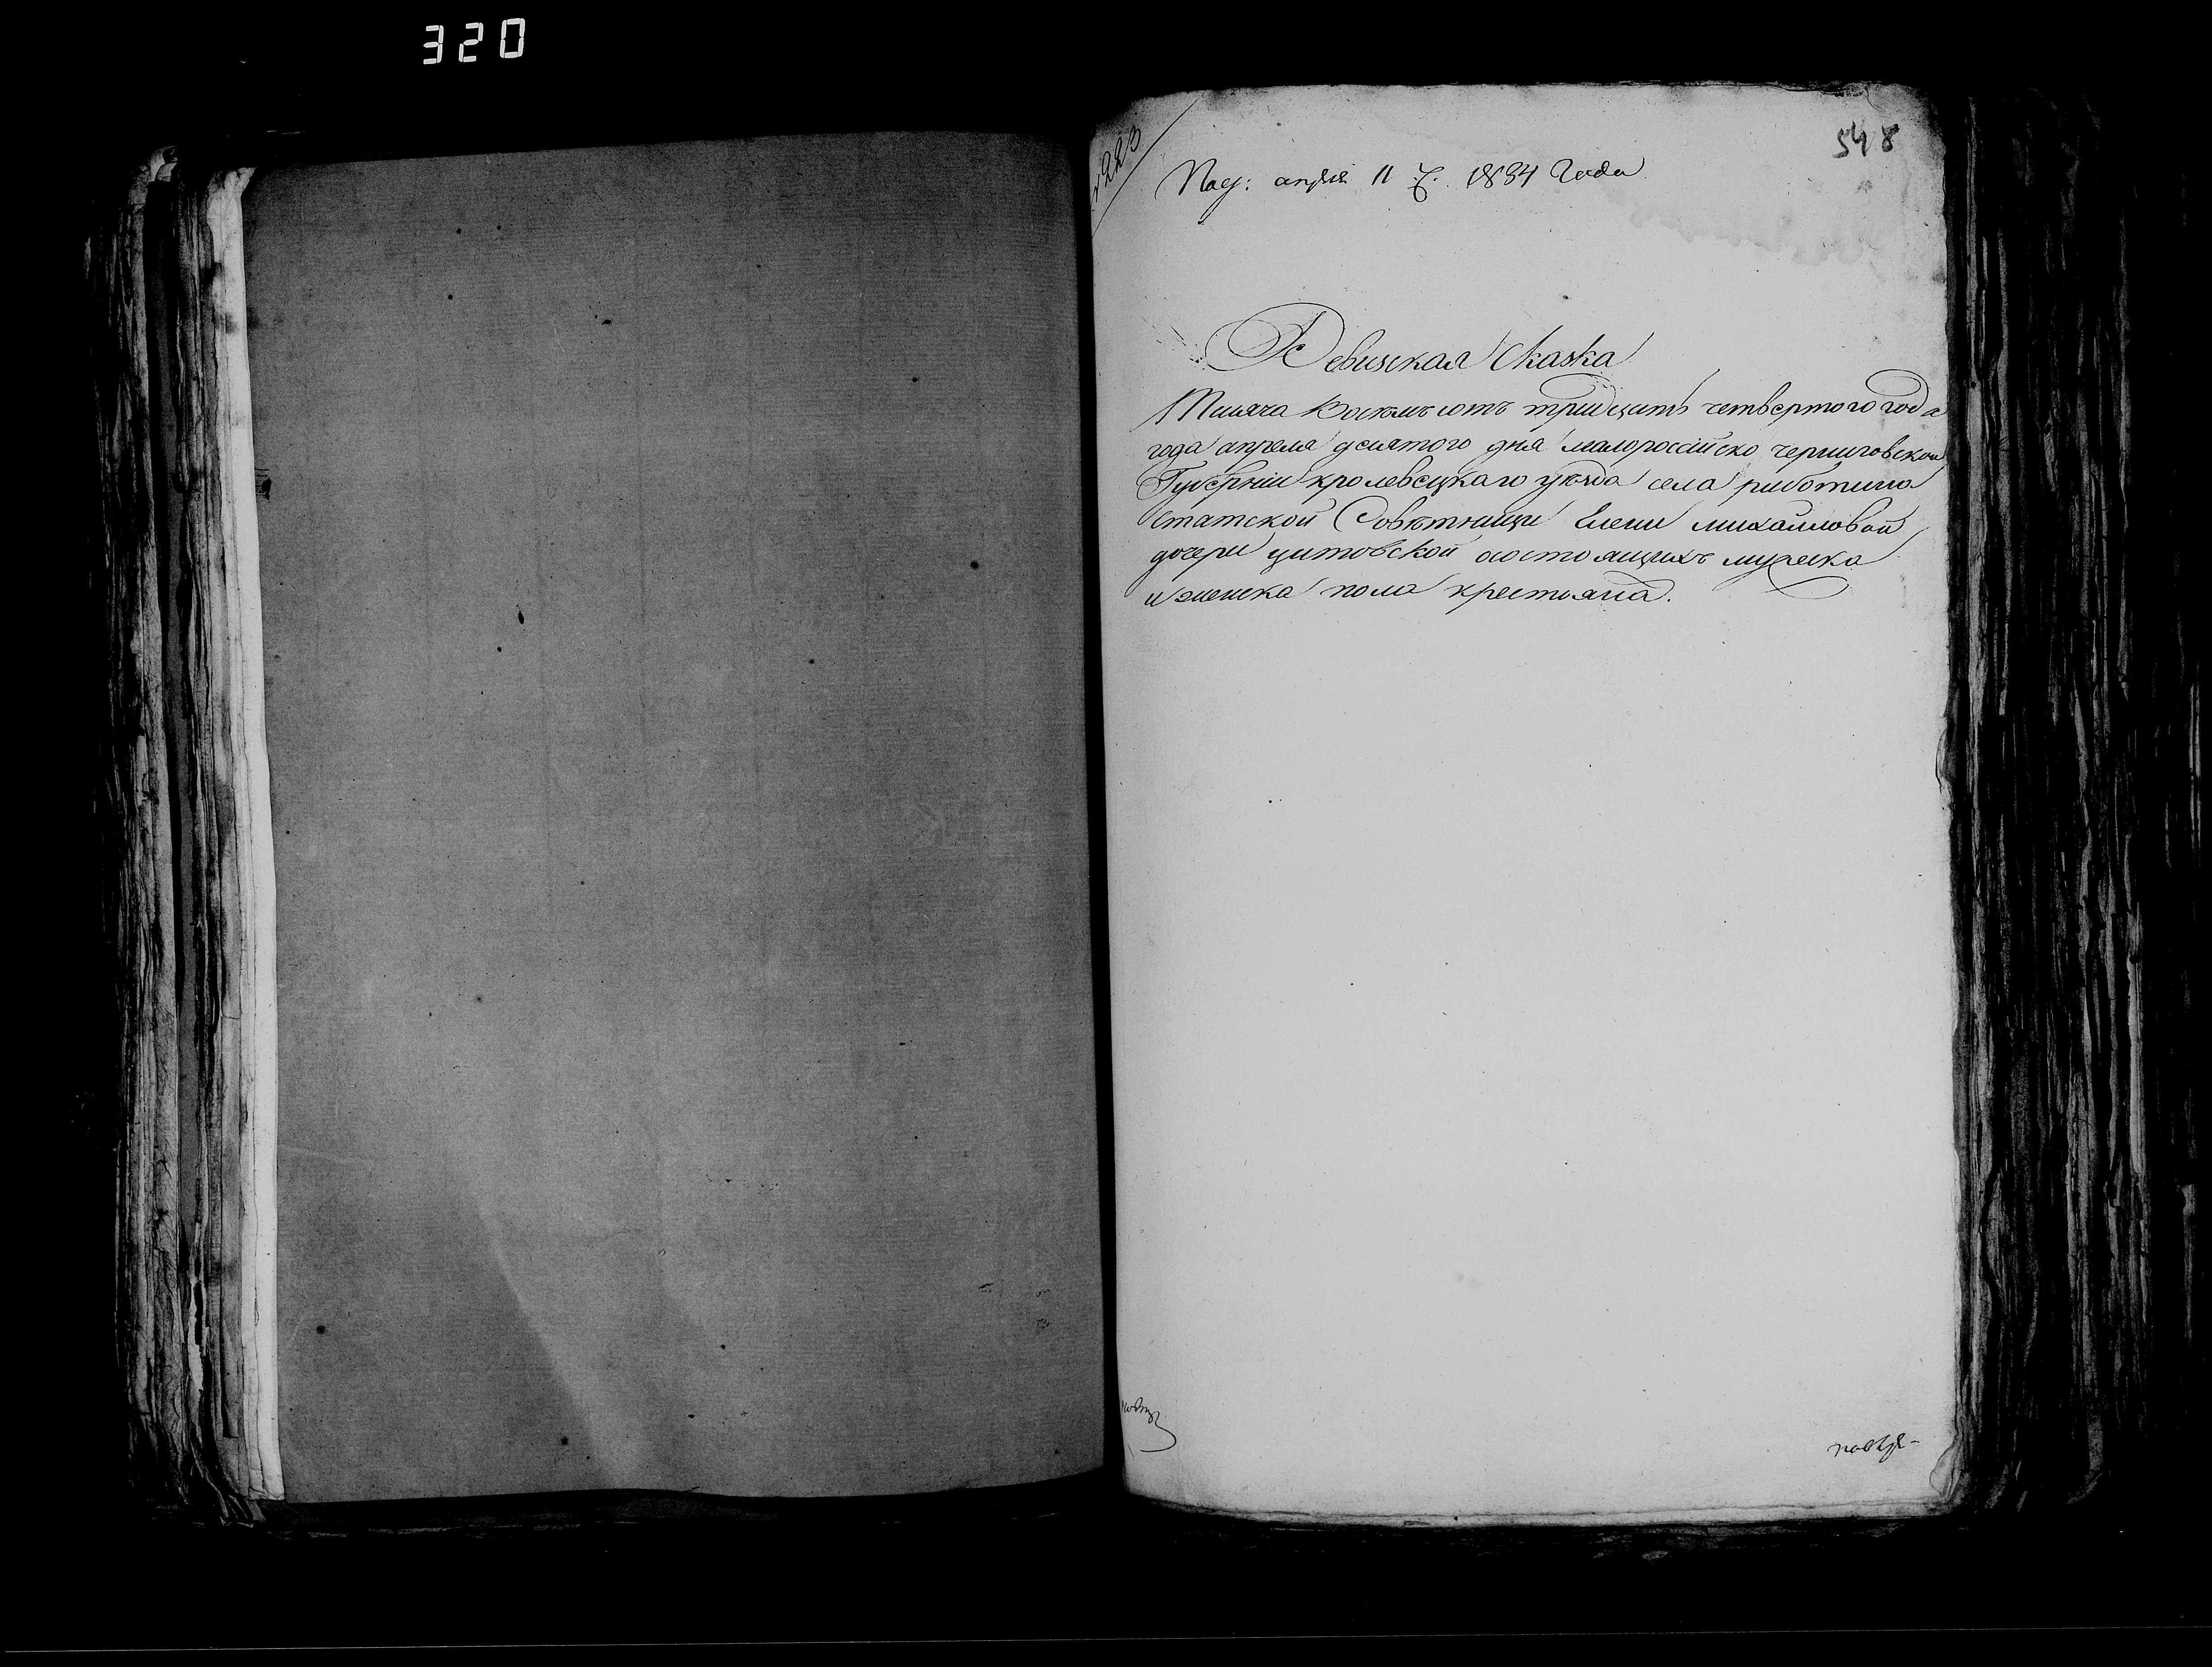 320
223
548
Под: апреля 11 д. 1834 Года
Ревизская Сказка
Тисяча Восемъсотъ тридцать четвертого года
года апреля десятого дня малороссійско черниговской
Губерніи кролевецкаго уезда села риботина
Статской Советници Елени михайловой
дочери цитовской состоящихъ мужеска
и женска пола крестьяна.